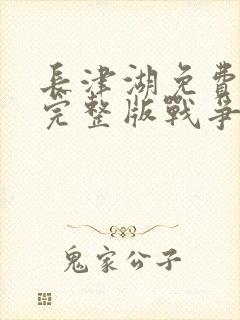 長津湖免費
完整版戰爭
鬼家公子